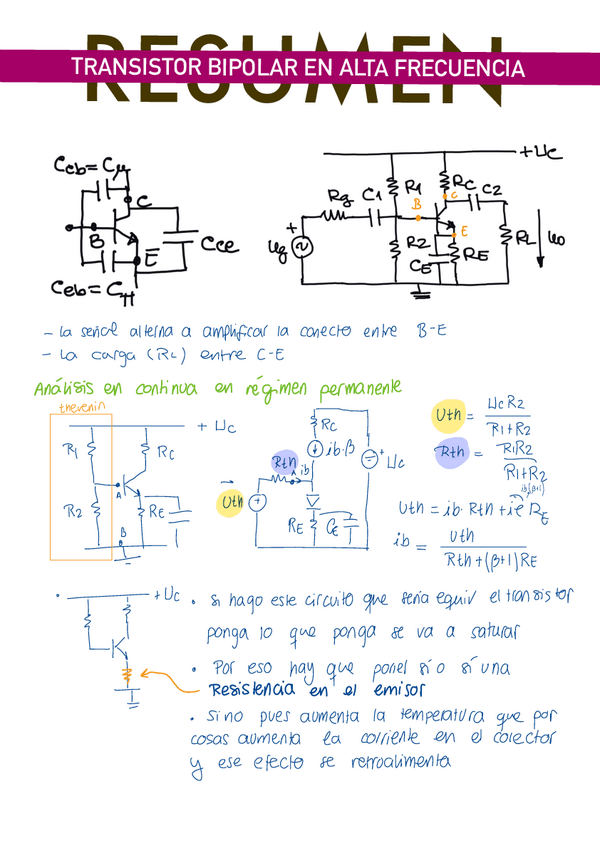 RESUMEN
TRANSISTOR BIPOLAR EN ALTA FRECUENCIA
Ccb = Cμ
C
B
E
Cce
Ceb = Cπ
+Uc
Rg
C1
R1
RC
C2
B
C
E
Ug
R2
CE
RE
RL
Uo
- La señal alterna a amplificar la conecto entre B-E
- La carga (RL) entre C-E
Análisis en continua en régimen permanente
thevenin
+ Uc
R1
RC
A
R2
RE
B
RC
ib·β
Uc
Rth
ib
Uth
RE
CE
Uth = UcR2 / R1+R2
Rth = R1R2 / R1+R2
ib(β+1)
Uth = ib·Rth + ie RE
ib = Uth / Rth+(β+1)RE
+Uc
• si hago este circuito que seria equiv el transistor
ponga lo que ponga se va a saturar
• Por eso hay que poner sí o sí una
Resistencia en el emisor
• Si no pues aumenta la temperatura que por
cosas aumenta la corriente en el colector
y ese efecto se retroalimenta